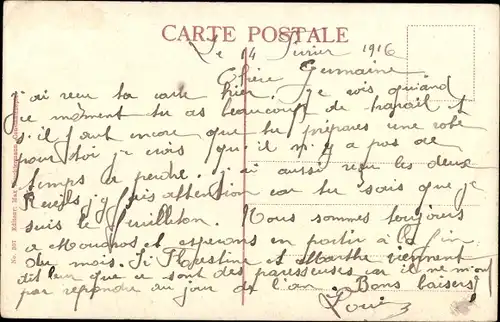 CARTE POSTALE
Le 14 Février 1916
Chère Germaine
j'ai reçu ta carte hier. je vois quand
ce moment tu as beaucoup de travail et
s'il faut encore que tu prépares une robe
pour toi je crois qu'il n'y a pas de
temps a perdre. j'ai aussi reçu les deux
j'y fais attention car tu sais que je
suis le feuilleton. Nous sommes toujours
a et espérons en partir à la fin
du mois. Si et Marthe viennent
dit leur que ce sont des paresseuses car il ne m'ont
pas répondu au jour de l'an. Bons baisers
Louis
No. 207 Editeur: Max